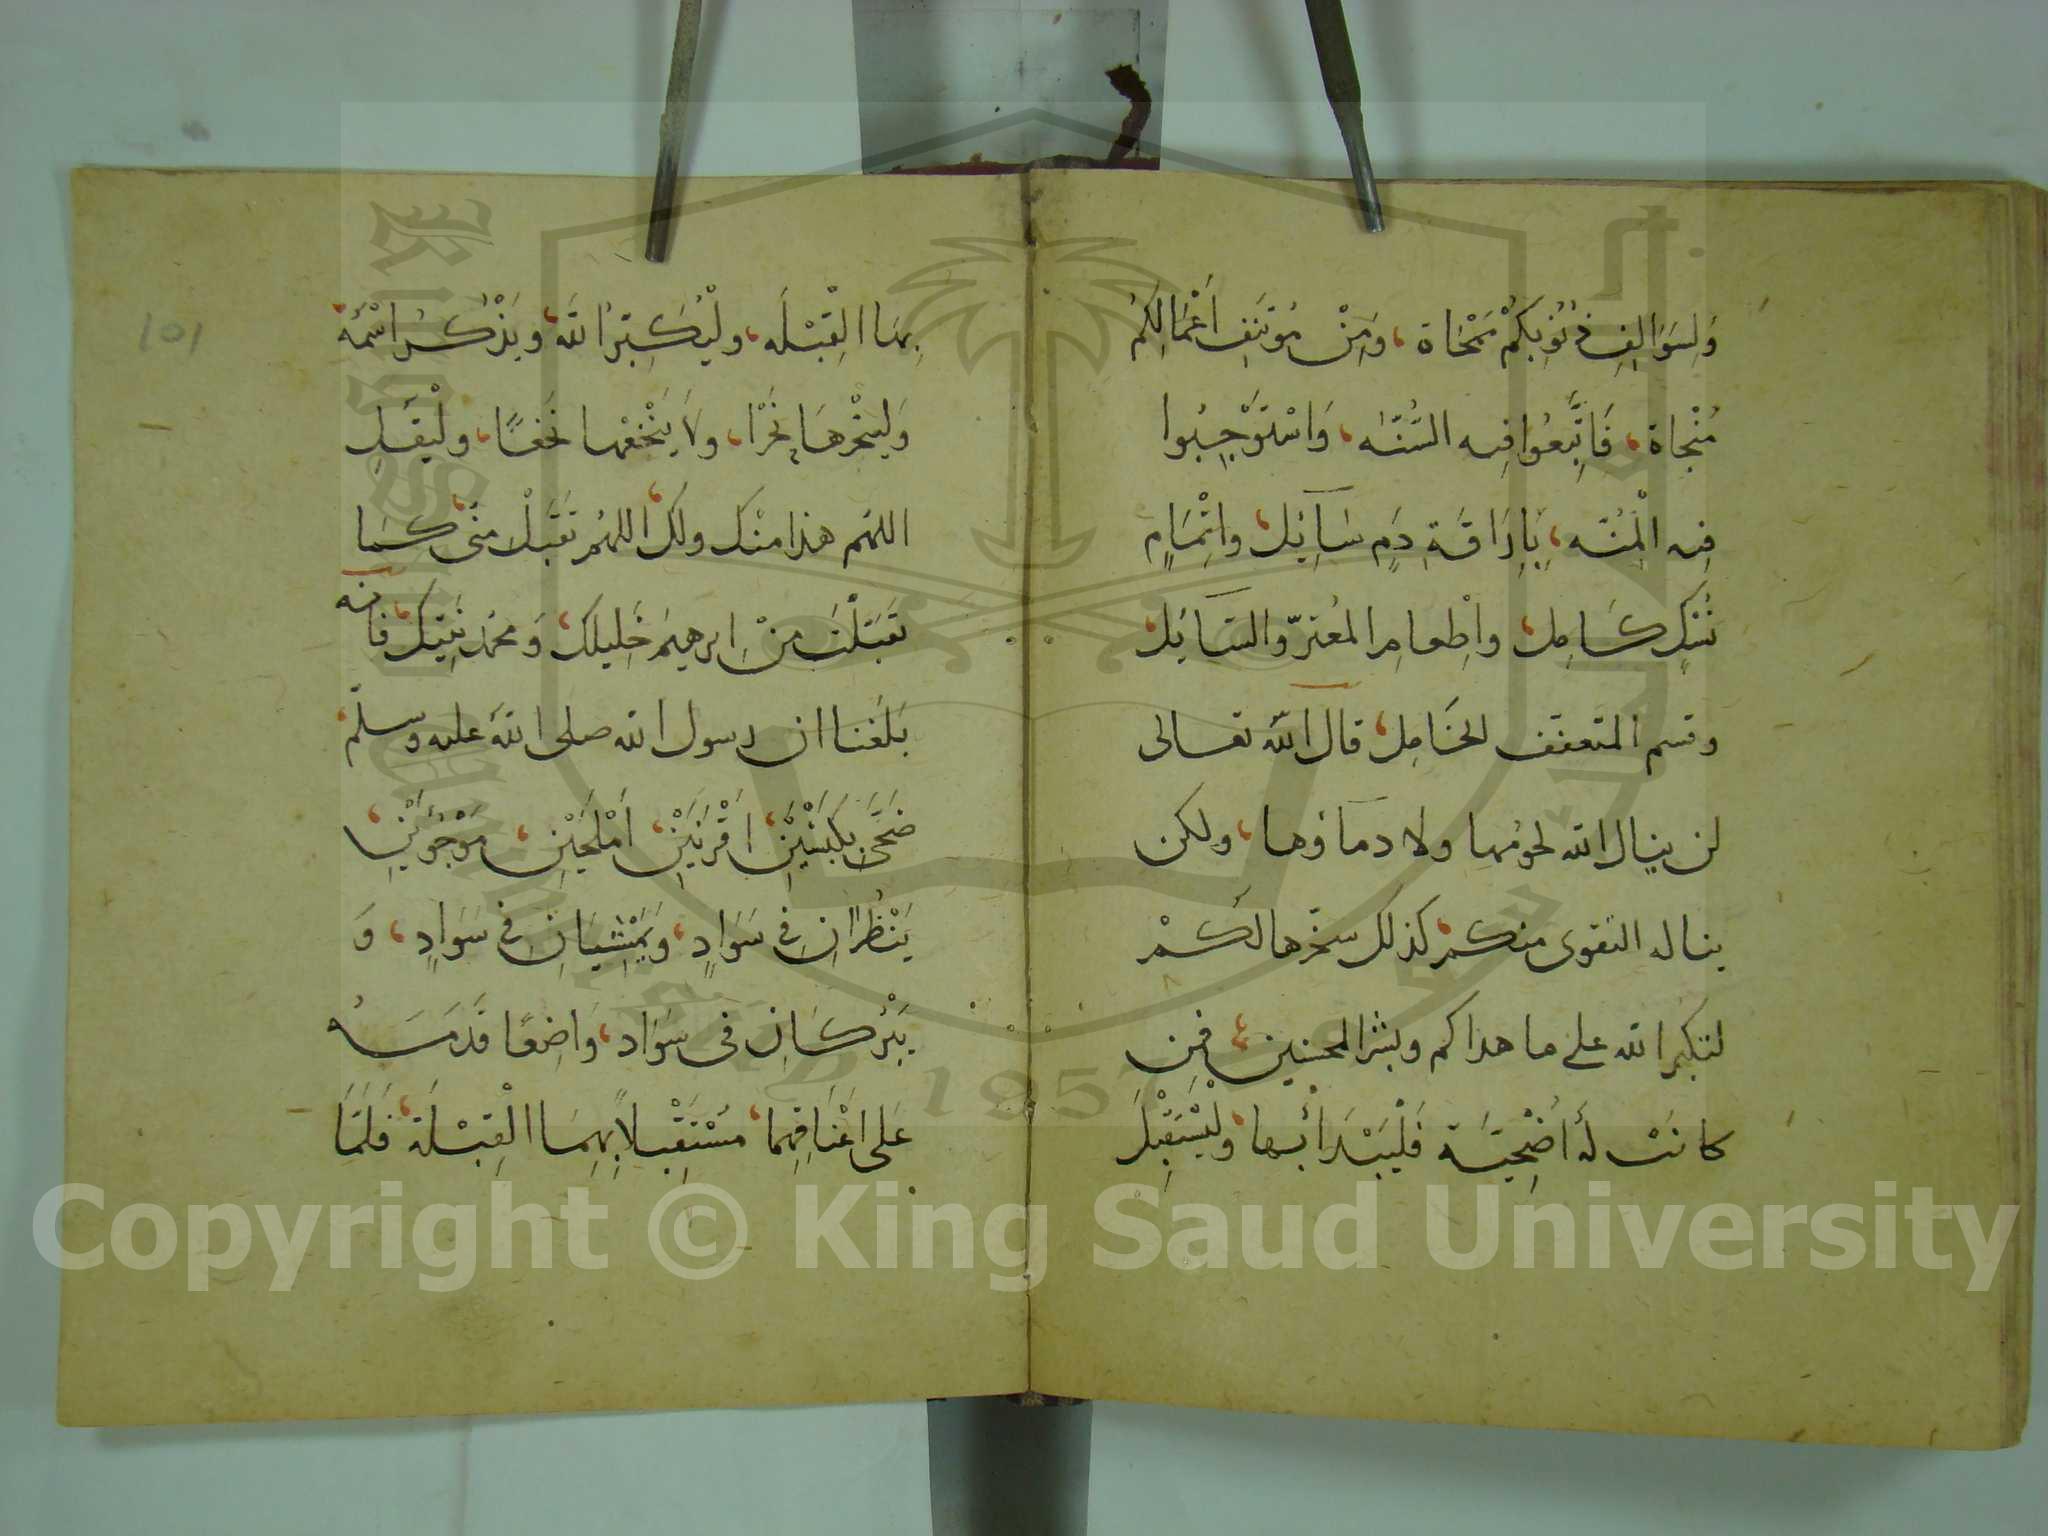 وَلِسَوَالِفِ ذُنُوبِكُمْ مَمْحَاة، وَمِنْ مُوْتَنِفِ أَعْمَالِكُمْ
مُنْجاة، فَاتَّبِعُوا فِيه السُّنَّه، وَاسْتَوْجِبُوا
فِيهِ الْمِنَّه، بِإِرَاقَةِ دَمٍ سَايِل، وإتْمَامِ
نُسُكٍ كَامِل، وإِطْعامِ المُعْترّ والسَايِل،
وقسم المتعفف الخَامِل، قال الله تعالى
لن ينال الله لحومُها ولا دماؤها، ولكن
يناله التقوى منكم، كذلك سخّرها لَكُمْ
لتكبروا الله على ما هداكم وبشر المحسنين، فمن
كانَتْ لَهُ أُضْحِيَّة فَلْيَبْدَأْ بها، ولْيَسْتَقْبِلْ
بِهَا الْقِبْلَه، ولْيُكَبِّرُ اللهَ، ويَذْكُرُ اسْمَهُ
وَلينْحَرهَا نَحْرًا، ولَا يَنْخعْها نَخعًا، ولْيَقُلِ
اللهم هذا منْك ولك، اللهُم تقبَّلْ منّى كمَا
تَقَبَّلْتَ مِنْ إبرهيم خَلِيلك، وَمحمد نَبِيِّك، فَإنه
بَلَغَنا ان رسول الله صلى الله عليه وسلّم
ضَحَّى بِكَبْشَيْنِ، اقْرَنَيْنِ، أمْلَحَيْنِ، مَوْجُوْئَيْنِ،
يَنْظُرَانِ فِي سَوَادٍ، ويَمْشِيَانِ فِي سَوَادٍ، وَ
يَبْرُكَانِ فى سَوَاد، وَاضِعًا قَدَمَهُ
عَلى أَعْنَاقِهِمَا، مُسْتَقْبِلاً بِهِمَا الْقِبْلَة، فَلَمَّا
101
Copyright © King Saud University
1957